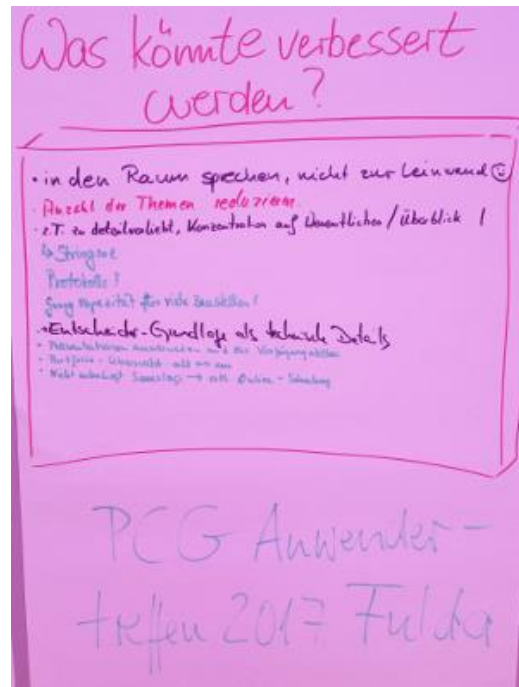 Was könnte verbessert
werden?
• in den Raum sprechen, nicht zur Leinwand ☺
• Anzahl der Themen reduzieren
• z.T. zu detailverliebt, Konzentration auf Wesentlichen / Überblick !
Protokolle?
für viele Baustellen!
Entscheider-Grundlage als technische Details
• Präsentationen ausdrucken und zur Verfügung stellen
• Portfolio-Übersicht
• Nicht unbedingt Samstag → Online-Schulung
PCG Anwender-
treffen 2017 Fulda